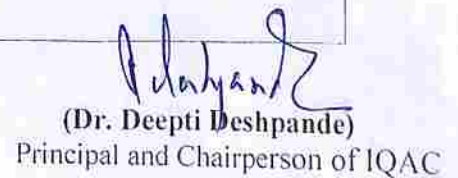 (Dr. Deepti Deshpande)
Principal and Chairperson of IQAC